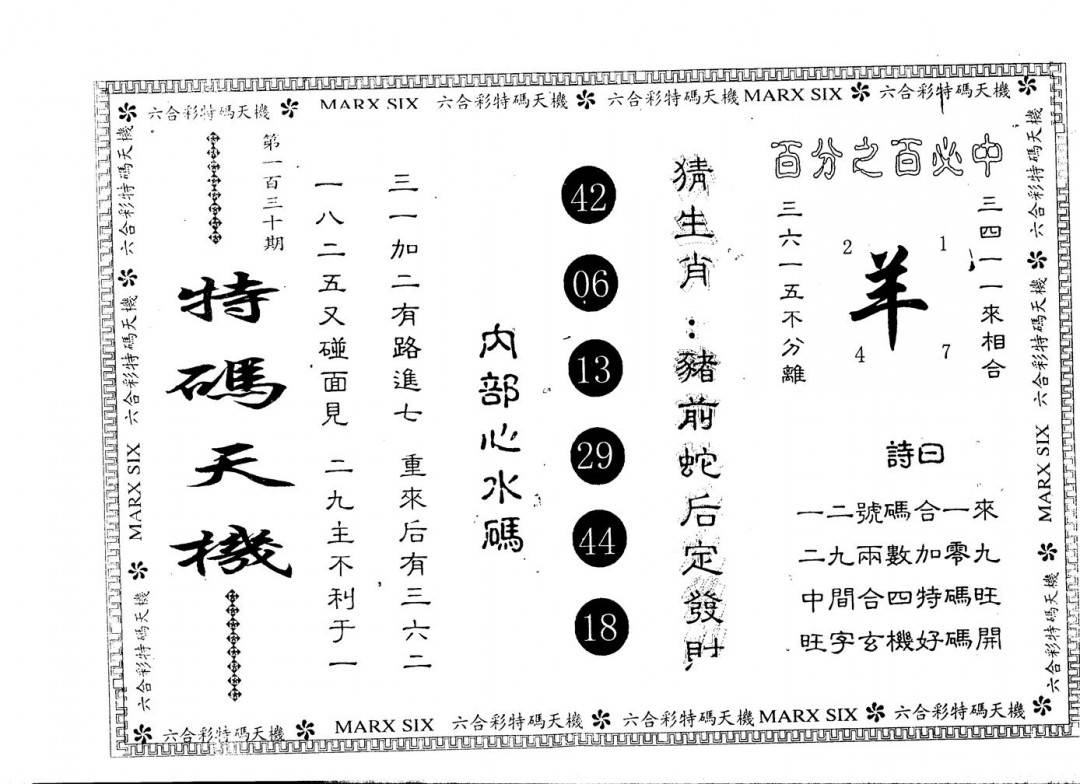 六合彩特碼天機 MARX SIX 六合彩特碼天機 六合彩特碼天機 MARX SIX 六合彩特碼天機
六合彩特碼天機 六合彩特碼天機 MARX SIX 六合彩特碼天機
百分之百必中
三四一一來相合
1
2
羊
7
4
三六一五不分離
詩曰
一二號碼合一來
二九兩數加零九
中間合四特碼旺
旺字玄機好碼開
猜生肖：豬前蛇后定發財
42
06
13
29
44
18
內部心水碼
三一加二有路進七 重來后有三六二
一八二五又碰面見 二九主不利于一
第一百三十期
特碼天機
六合彩特碼天機 六合彩特碼天機 MARX SIX 六合彩特碼天機
六合彩特碼天機 MARX SIX 六合彩特碼天機 六合彩特碼天機 MARX SIX 六合彩特碼天機